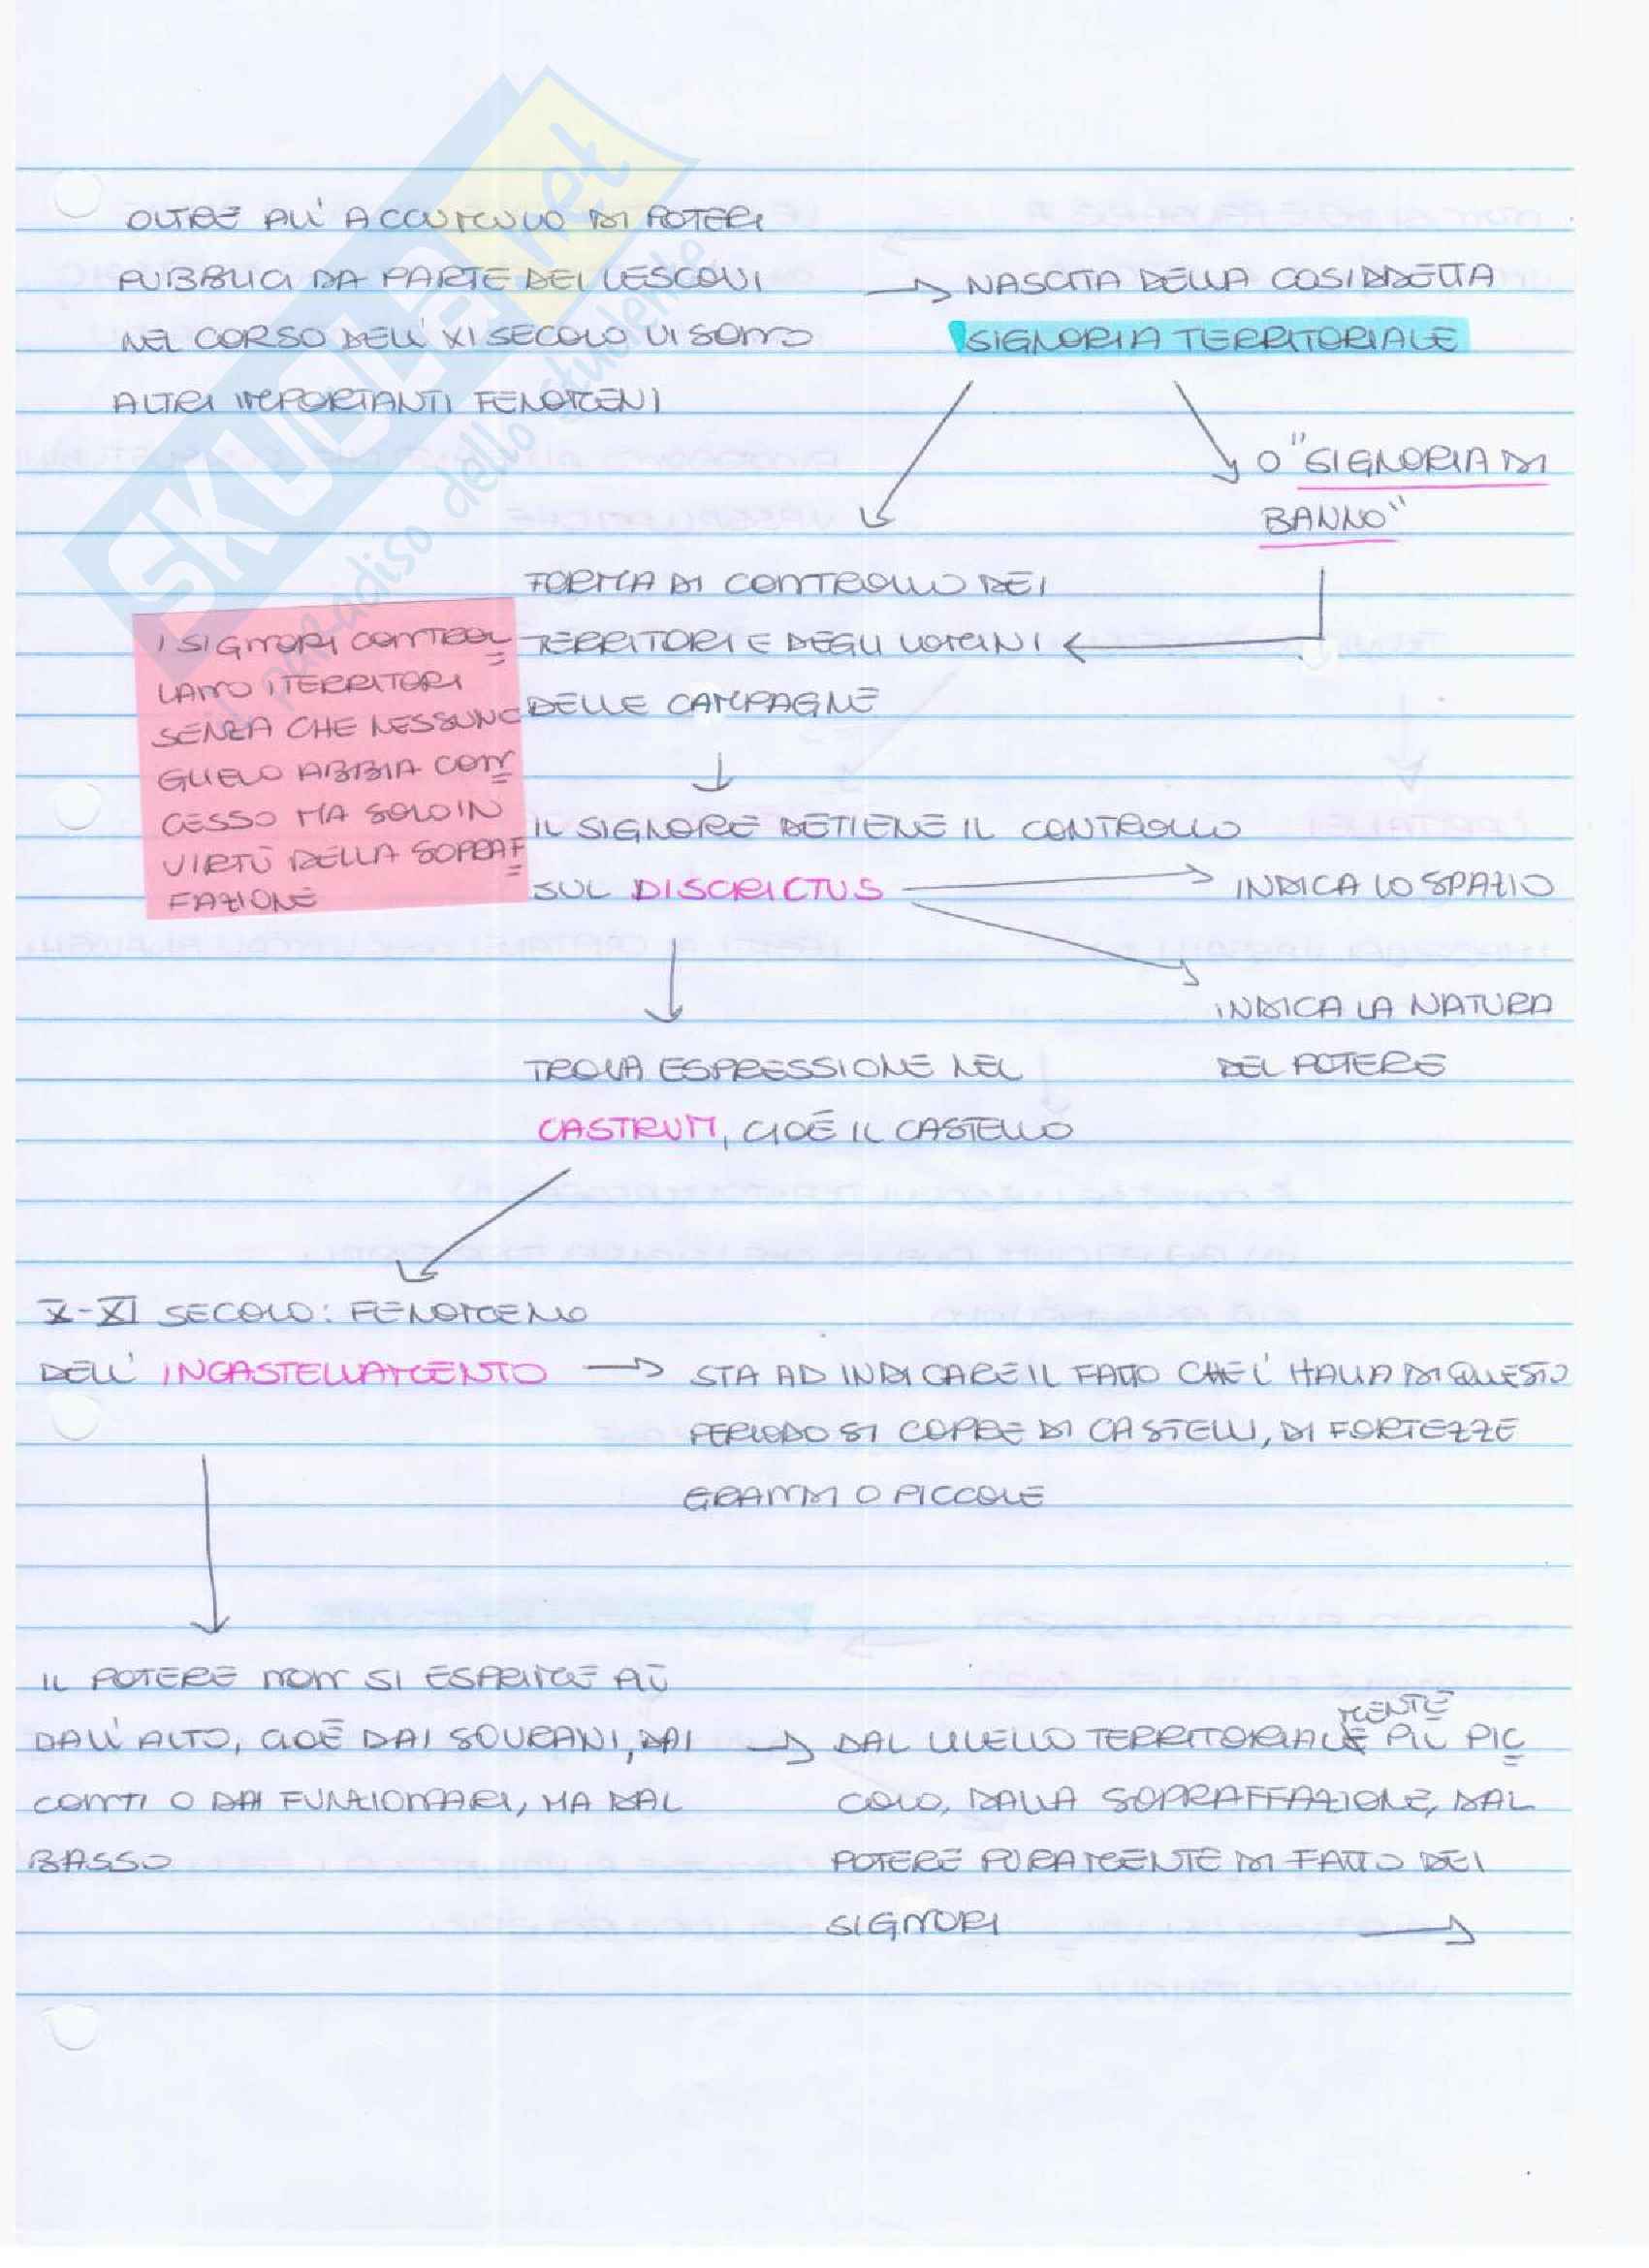 SKUOLA.net
il paradiso dello studente
OLTRE ALL'ACCUMULO DI POTERI
PUBBLICI DA PARTE DEI VESCOVI
NEL CORSO DELL'XI SECOLO VI SONO
ALTRI IMPORTANTI FENOMENI
→ NASCITA DELLA COSIDDETTA
SIGNORIA TERRITORIALE
O "SIGNORIA DI
BANNO"
FORMA DI CONTROLLO DEI
TERRITORI E DEGLI UOMINI ←
DELLE CAMPAGNE
I SIGNORI CONTROL
LANO I TERRITORI
SENZA CHE NESSUNO
GLIELO ABBIA CON
CESSO MA SOLO IN
VIRTÙ DELLA SOPRAF
FAZIONE
IL SIGNORE DETIENE IL CONTROLLO
SUL DISCRICTUS
→ INDICA LO SPAZIO
INDICA LA NATURA
DEL POTERE
TROVA ESPRESSIONE NEL
CASTRUM, CIOÈ IL CASTELLO
X-XI SECOLO: FENOMENO
DELL'INCASTELLAMENTO
→ STA AD INDICARE IL FATTO CHE L'ITALIA DI QUESTO
PERIODO SI COPRE DI CASTELLI, DI FORTEZZE
GRANDI O PICCOLE
IL POTERE NON SI ESPRIME PIÙ
DALL'ALTO, CIOÈ DAI SOVRANI, DAI
CONTI O DAI FUNZIONARI, MA DAL
BASSO
→ DAL LIVELLO TERRITORIALEMENTE PIÙ PIC
COLO, DALLA SOPRAFFAZIONE, DAL
POTERE PURAMENTE DI FATTO DEI
SIGNORI →